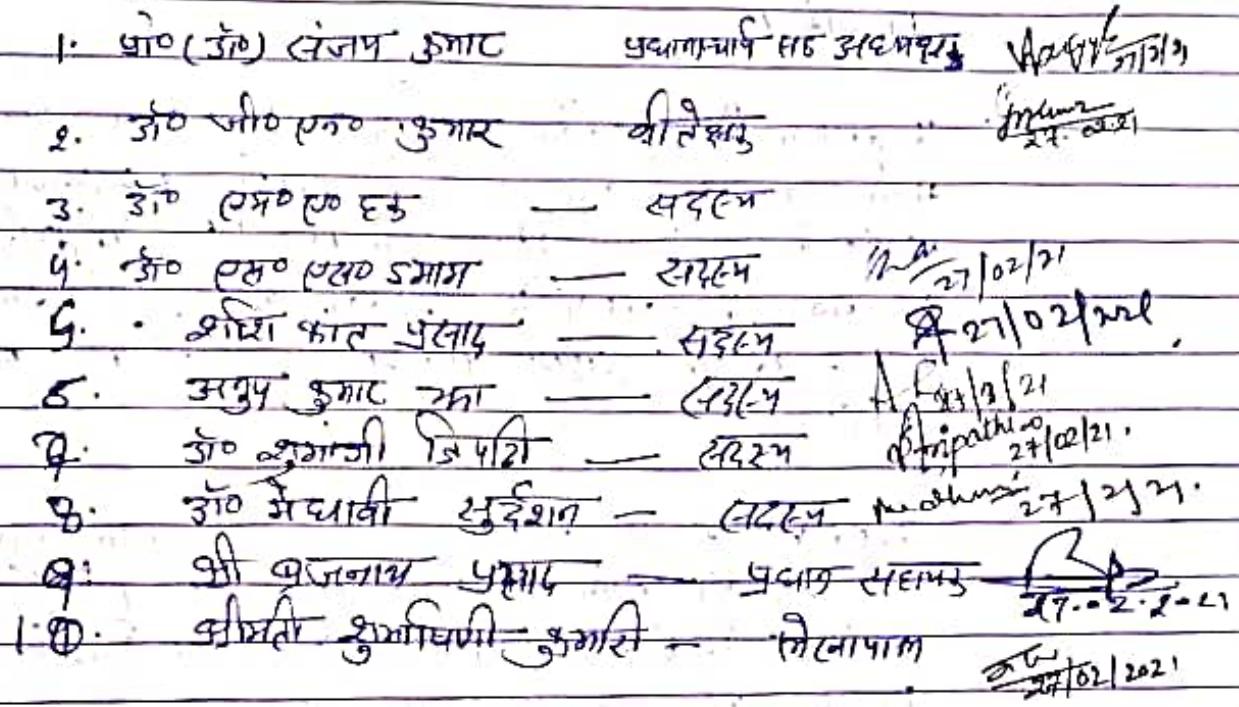 1. प्रो० (डॉ०) संजय कुमार प्रधानाचार्य सह अध्यक्ष 27/2/21
2. डॉ० जी० एन० कुमार 27.02.21
3. डॉ० एम० ए० हक — सदस्य
4. डॉ० एस० एस० इमाम — सदस्य 27/02/21
5. शशि कांत प्रसाद — सदस्य 27/02/2021
6. अनुप कुमार झा — सदस्य 27/2/21
7. डॉ० शुभांगी त्रिपाठी — सदस्य Stripathi 27/02/21.
8. डॉ० मेधावी सुर्दशन — सदस्य 27/2/21.
9. श्री बृजनाथ प्रसाद — प्रधान सहायक 27.02.2021
10. श्रीमती कुमारी — लेखापाल 27/02/2021